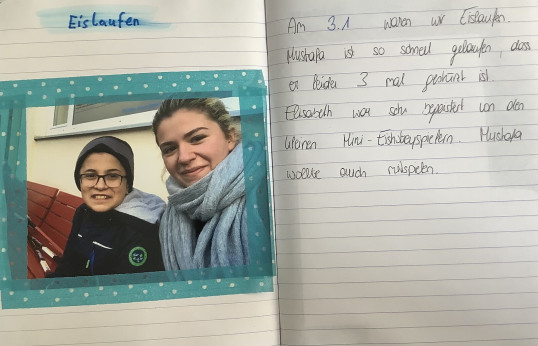 Eislaufen
Am 3.1 waren wir Eislaufen.
Mustafa ist so schnell gelaufen, dass
er leider 3 mal gestürzt ist.
Elisabeth war sehr begeistert von den
kleinen Mini-Eishockeyspielern. Mustafa
wollte auch mitspielen.